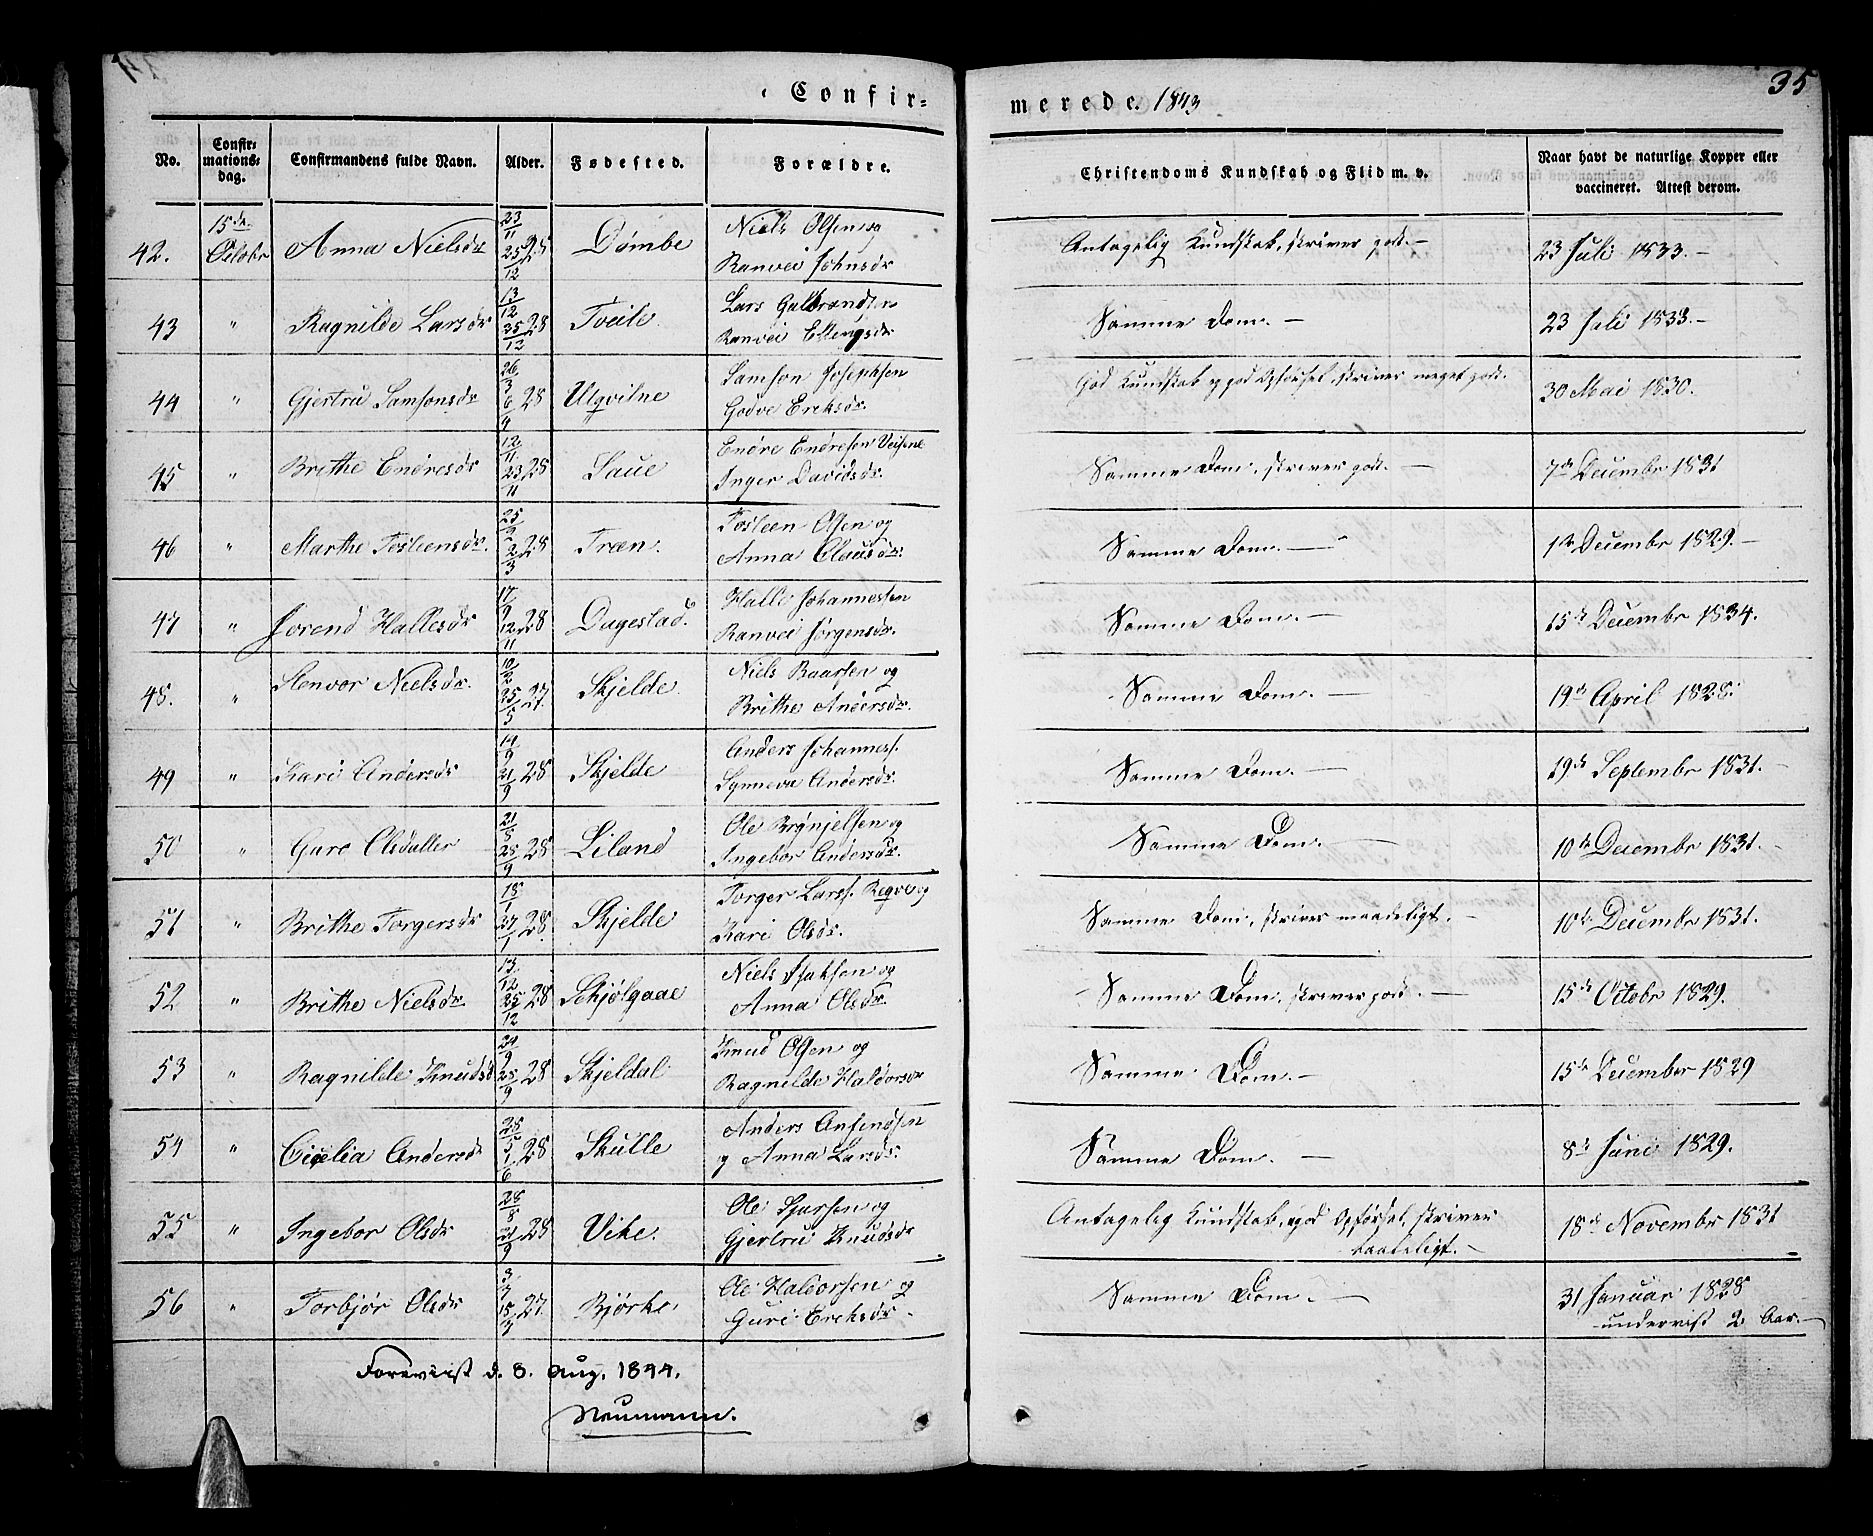 35
Confir=
merede. 1843
No.
Confir=
mations=
dag.
Confirmandens fulde Navn.
Alder.
Fødested.
Forældre.
Christendoms Kundskab og Flid m. v.
Naar havt de naturlige Kopper eller
vaccineret. Attest derom.
42. 15de Octobr Anna Nielsdr 23/11 25/12 28 Dømbe Niels Olsen og
Ranvei Johnsdr Antagelig Kundskab, skriver godt. — 23 Juli 1833. —
43 " Ragnilde Larsdr 13/12 25/12 28 Tveite Lars Gulbrandsen
Ranvei Ellingsdr Samme Dom. — 23 Juli 1833. —
44 " Gjertru Samsonsdr 26/3 6/4 28 Ulgvitne Samson Josephsen
Godve Eriksdr. God Kundskab og god Opførsel, skriver meget godt. 30 Mai 1830.
45 " Brithe Endresdr 12/11 23/11 28 Saue Endre Endresen Veisene
Inger Davidsdr. Samme Dom, skriver godt. — 7de Decembr 1831
46 " Marthe Tosteensdr. 25/2 2/3 28 Træn. Tosteen Olsen og
Anna Clausdr. Samme Dom. — 1te Decembr 1829. —
47 " Jorend Hallesdr 17/9 12/11 28 Dugestad. Halle Johannessen
Ranvei Jørgensdr. Samme Dom. — 15de Decembr 1834.
48. " Stenvor Nielsdr. 10/2 25/5 27. Skjelde. Niels Baarsen og
Brithe Andersdr. Samme Dom. — 19de April 1828.
49 " Kari Andersdr 14/9 21/9 28 Skjelde Anders Johanness.
Synneva Andersdr. Samme Dom. — 19de Septembr 1831. —
50 " Guro Olsdatter 21/8 28/9 28 Liland Ole Brynjelsen og
Ingebor Andersdr. Samme Dom. — 10de Decembr 1831. —
51 " Brithe Torgersdr 18/1 27/1 28. Skjelde Torger Larss. Regve og
Kari Olsdr. Samme Dom, skriver maadeligt. — 10de Decembr 1831.
52 " Brithe Nielsdr 13/12 25/12 28 Schjølgaae Niels Isaksen og
Anna Olsdr Samme Dom, skriver godt. — 15de Octobr 1829.
53 " Ragnilde Knudsd 24/9 28/9 28 Skjeldal Knud Olsen og
Ragnilde Haldorsdr Samme Dom. — 15de December 1829
54 " Cicelia Andersdr 28/5 1/6 28 Skulle Anders Ansendsen
og Anna Larsdr. Samme Dom. — 8de Juni 1829.
55 " Ingebor Olsdr 28/8 21/9 28 Vike. Ole Ivarsen og
Gjertru Knudsdr Antagelig Kundskab, god Opførsel, skriver
taaleligt. — 18de Novembr 1831
56 " Torbjør Olsdr 3/3 18/3 27. Bjørke, Ole Haldorsen og
Guri Eriksdr. Samme Dom. — 31 Januar 1828
undervist 2 Aar. —
Foreviist d. 8. Aug. 1844.
Neumann.